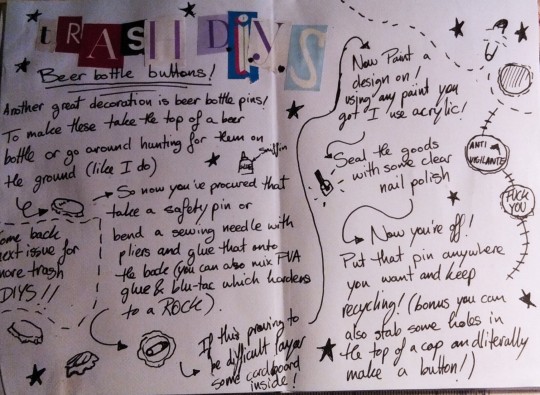 tRASH D.i.Y.S
Beer bottle buttons!
Another great decoration is beer bottle pins!
To make these take the top of a beer
bottle or go around hunting for them on
the ground (like I do)
sniffin
GLUE
So now you've procured that
take a safety pin or
bend a sewing needle with
pliers and glue that onto
the back (you can also mix PVA
glue & blu-tac which hardens
to a ROCK).
Come back
next issue for
more trash
DIYS!!
If this proving to
be difficult layer
some cardboard
inside!
Now Paint a
design on!
using any paint you
got I use acrylic!
Seal the goods
with some clear
nail polish
Now you're off!
Put that pin anywhere
you want and keep
recycling! (bonus you can
also stab some holes in
the top of a cap and literally
make a button!)
ANTI
VIGILANTE
FUCK
YOU